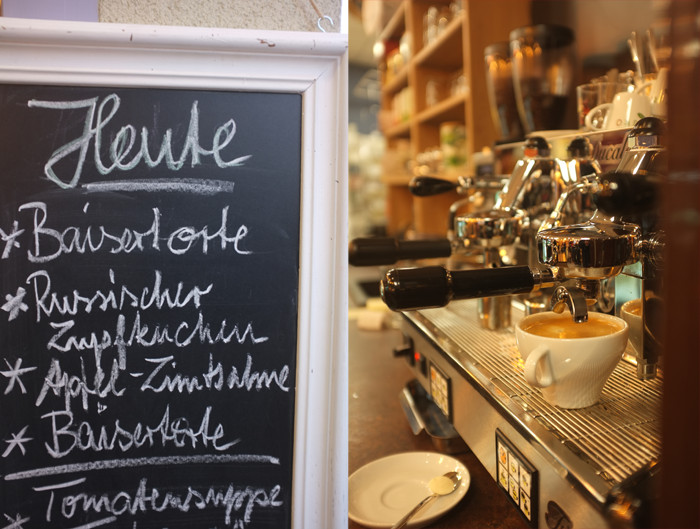 Heute
* Baisertorte
* Russischer
Zupfkuchen
* Apfel-Zimtsahne
* Baisertorte
* Tomatensuppe
Ducale